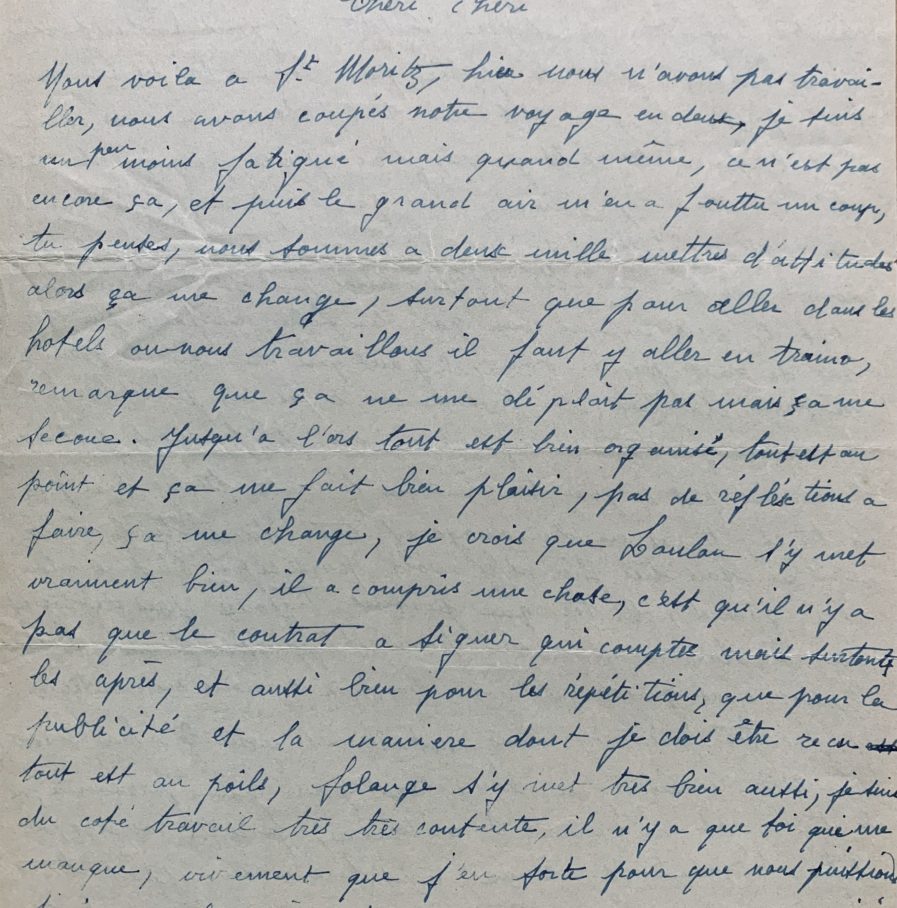 Chéri Chéri
Nous voila a St Moritz, hier nous n'avons pas travai-
ller, nous avons coupés notre voyage en deux, je suis
un peu moins fatigué mais quand même, ce n'est pas
encore ça, et puis le grand air m'en a fouttu un coup,
tu penses, nous sommes a deux mille mettres d'attitudes
alors ça me change, surtout que pour aller dans les
hotels ou nous travaillons il faut y aller en traino,
remarque que ça ne me déplait pas mais ça me
secoue. Jusqu'a l'ors tout est bien organisé, tout est au
point et ça me fait bien plaisir, pas de réfléctions a
faire, ça me change, je crois que Loulou s'y met
vraiment bien, il a compris une chose, c'est qu'il n'y a
pas que le contrat a signer qui compte mais surtout
les après, et aussi bien pour les répétitions, que pour la
publicité et la maniere dont je dois être recu
tout est au poils, Solange s'y met tres bien aussi, je suis
du coté travail très très contente, il n'y a que toi qui me
manque, vivement que j'en sorte pour que nous puissions